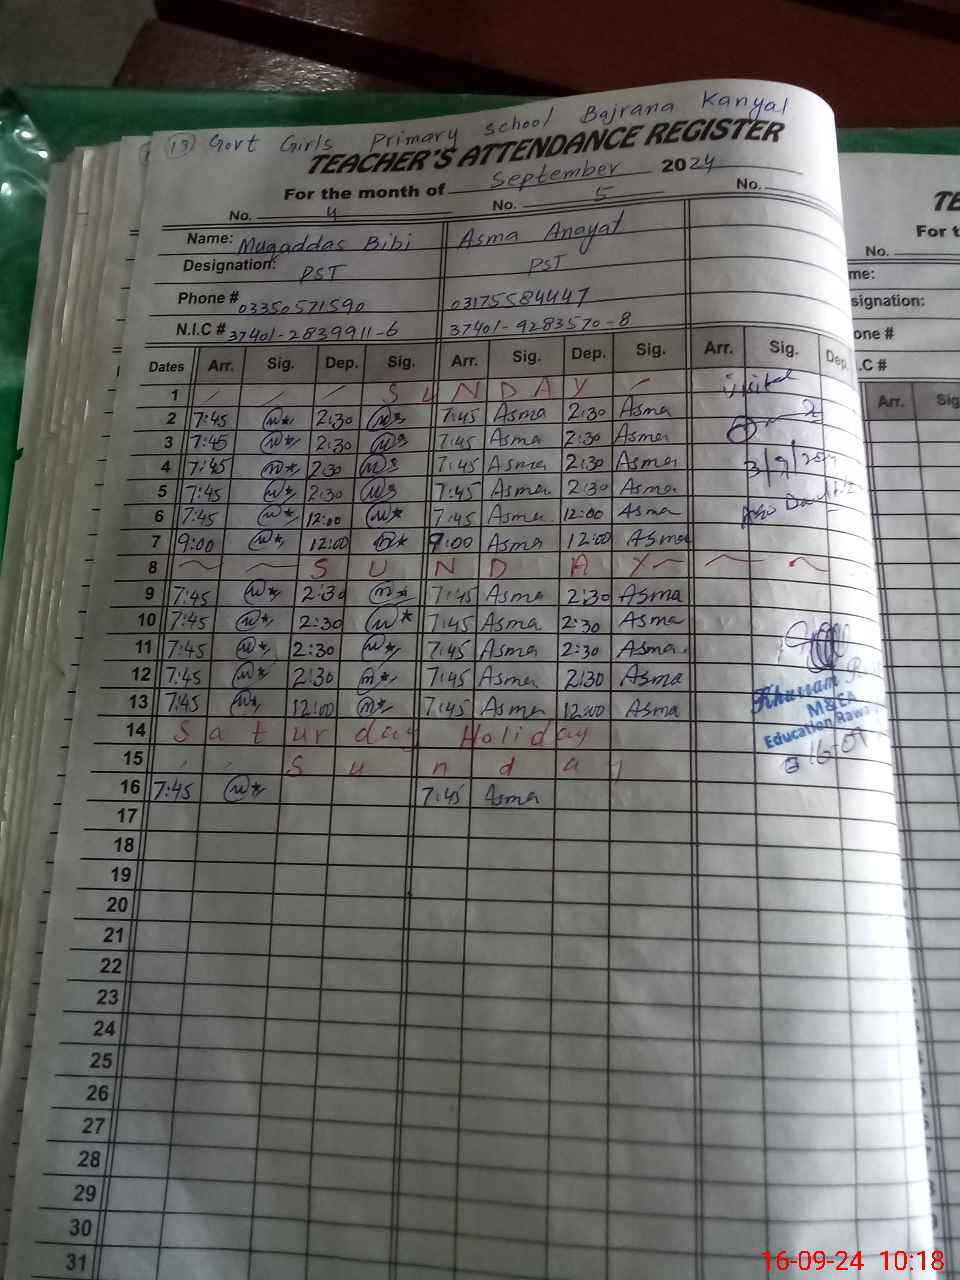 13 Govt Girls Primary School Bajrana Kanyal
TEACHER'S ATTENDANCE REGISTER
For the month of September 2024
No. 4 No. 5 No.
Name: Muqaddas Bibi Asma Anayat
Designation: PST PST
Phone # 03350571590 03175584447
N.I.C # 37401-2839911-6 37401-9283570-8
Dates Arr. Sig. Dep. Sig. Arr. Sig. Dep. Sig. Arr. Sig. Dep.
1 SUNDAY
2 7:45 2:30 7:45 Asma 2:30 Asma
3 7:45 2:30 7:45 Asma 2:30 Asma
4 7:45 2:30 7:45 Asma 2:30 Asma 3/9/2024
5 7:45 2:30 7:45 Asma 2:30 Asma
6 7:45 12:00 7:45 Asma 12:00 Asma
7 9:00 12:00 9:00 Asma 12:00 Asma
8 SUNDAY
9 7:45 2:30 7:45 Asma 2:30 Asma
10 7:45 2:30 7:45 Asma 2:30 Asma
11 7:45 2:30 7:45 Asma 2:30 Asma
12 7:45 2:30 7:45 Asma 2:30 Asma
13 7:45 12:00 7:45 Asma 12:00 Asma
Khurram
M&EA
Education
14 Saturday Holiday
15 Sunday
16 7:45 7:45 Asma
17
18
19
20
21
22
23
24
25
26
27
28
29
30
31
TE
For t
No.
me:
signation:
one #
.C #
Arr. Sig
16-09-24 10:18